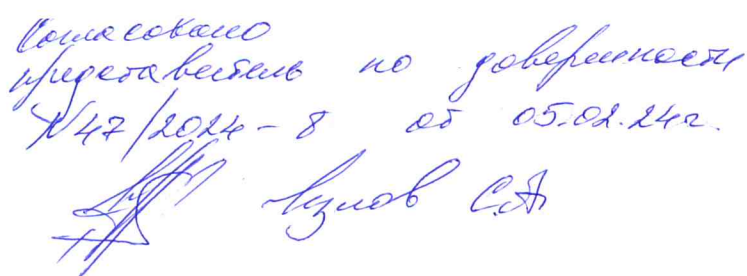 Согласовано
представитель по доверенности
№47/2024-8 от 05.02.24г.
С.А.